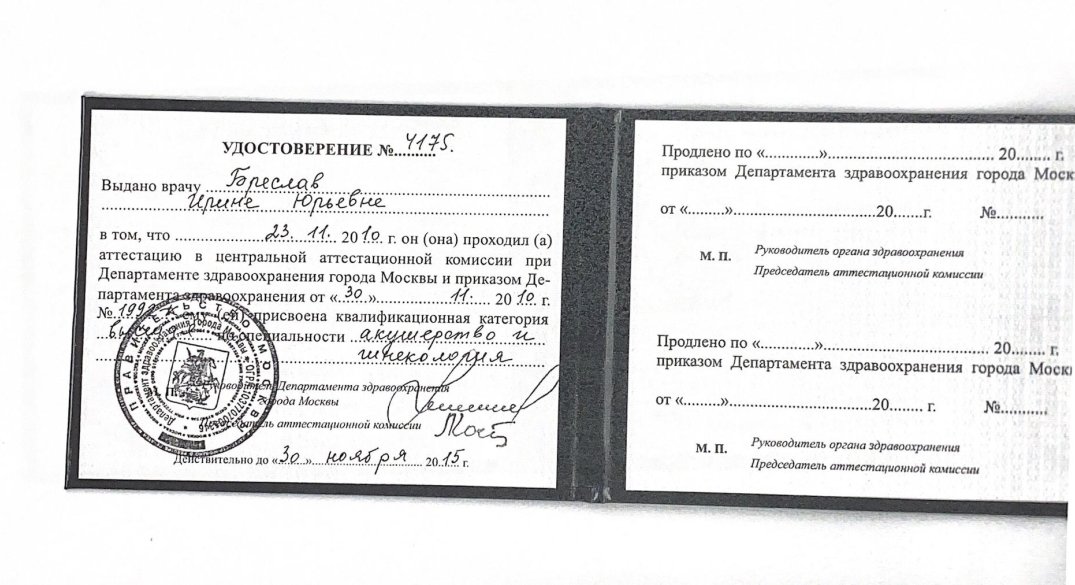 УДОСТОВЕРЕНИЕ №..4175.
Выдано врачу Бреслав
Ирине Юрьевне
в том, что 23. 11. 2010. г. он (она) проходил (а)
аттестацию в центральной аттестационной комиссии при
Департаменте здравоохранения города Москвы и приказом Де-
партамента здравоохранения от «30» 11. 2010. г.
№ присвоена квалификационная категория
по специальности акушерство и
гинекология
Руководитель Департамента здравоохранения
города Москвы
Председатель аттестационной комиссии
Действительно до «30» ноября 2015 г.
ПРАВИТЕЛЬСТВО МОСКВЫ
Департамент здравоохранения города Москвы
М. П.
Продлено по «.............»........................................... 20........ г.
приказом Департамента здравоохранения города Моск
от «.........»....................................20.......г. №............
М. П. Руководитель органа здравоохранения
Председатель аттестационной комиссии
Продлено по «.............»........................................... 20........ г.
приказом Департамента здравоохранения города Моск
от «.........»....................................20........ г. №............
М. П. Руководитель органа здравоохранения
Председатель аттестационной комиссии